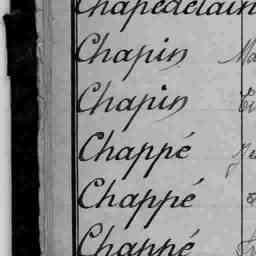 Chapedelain
Chapin
Chapin
Chappé
Chappé
Chappé